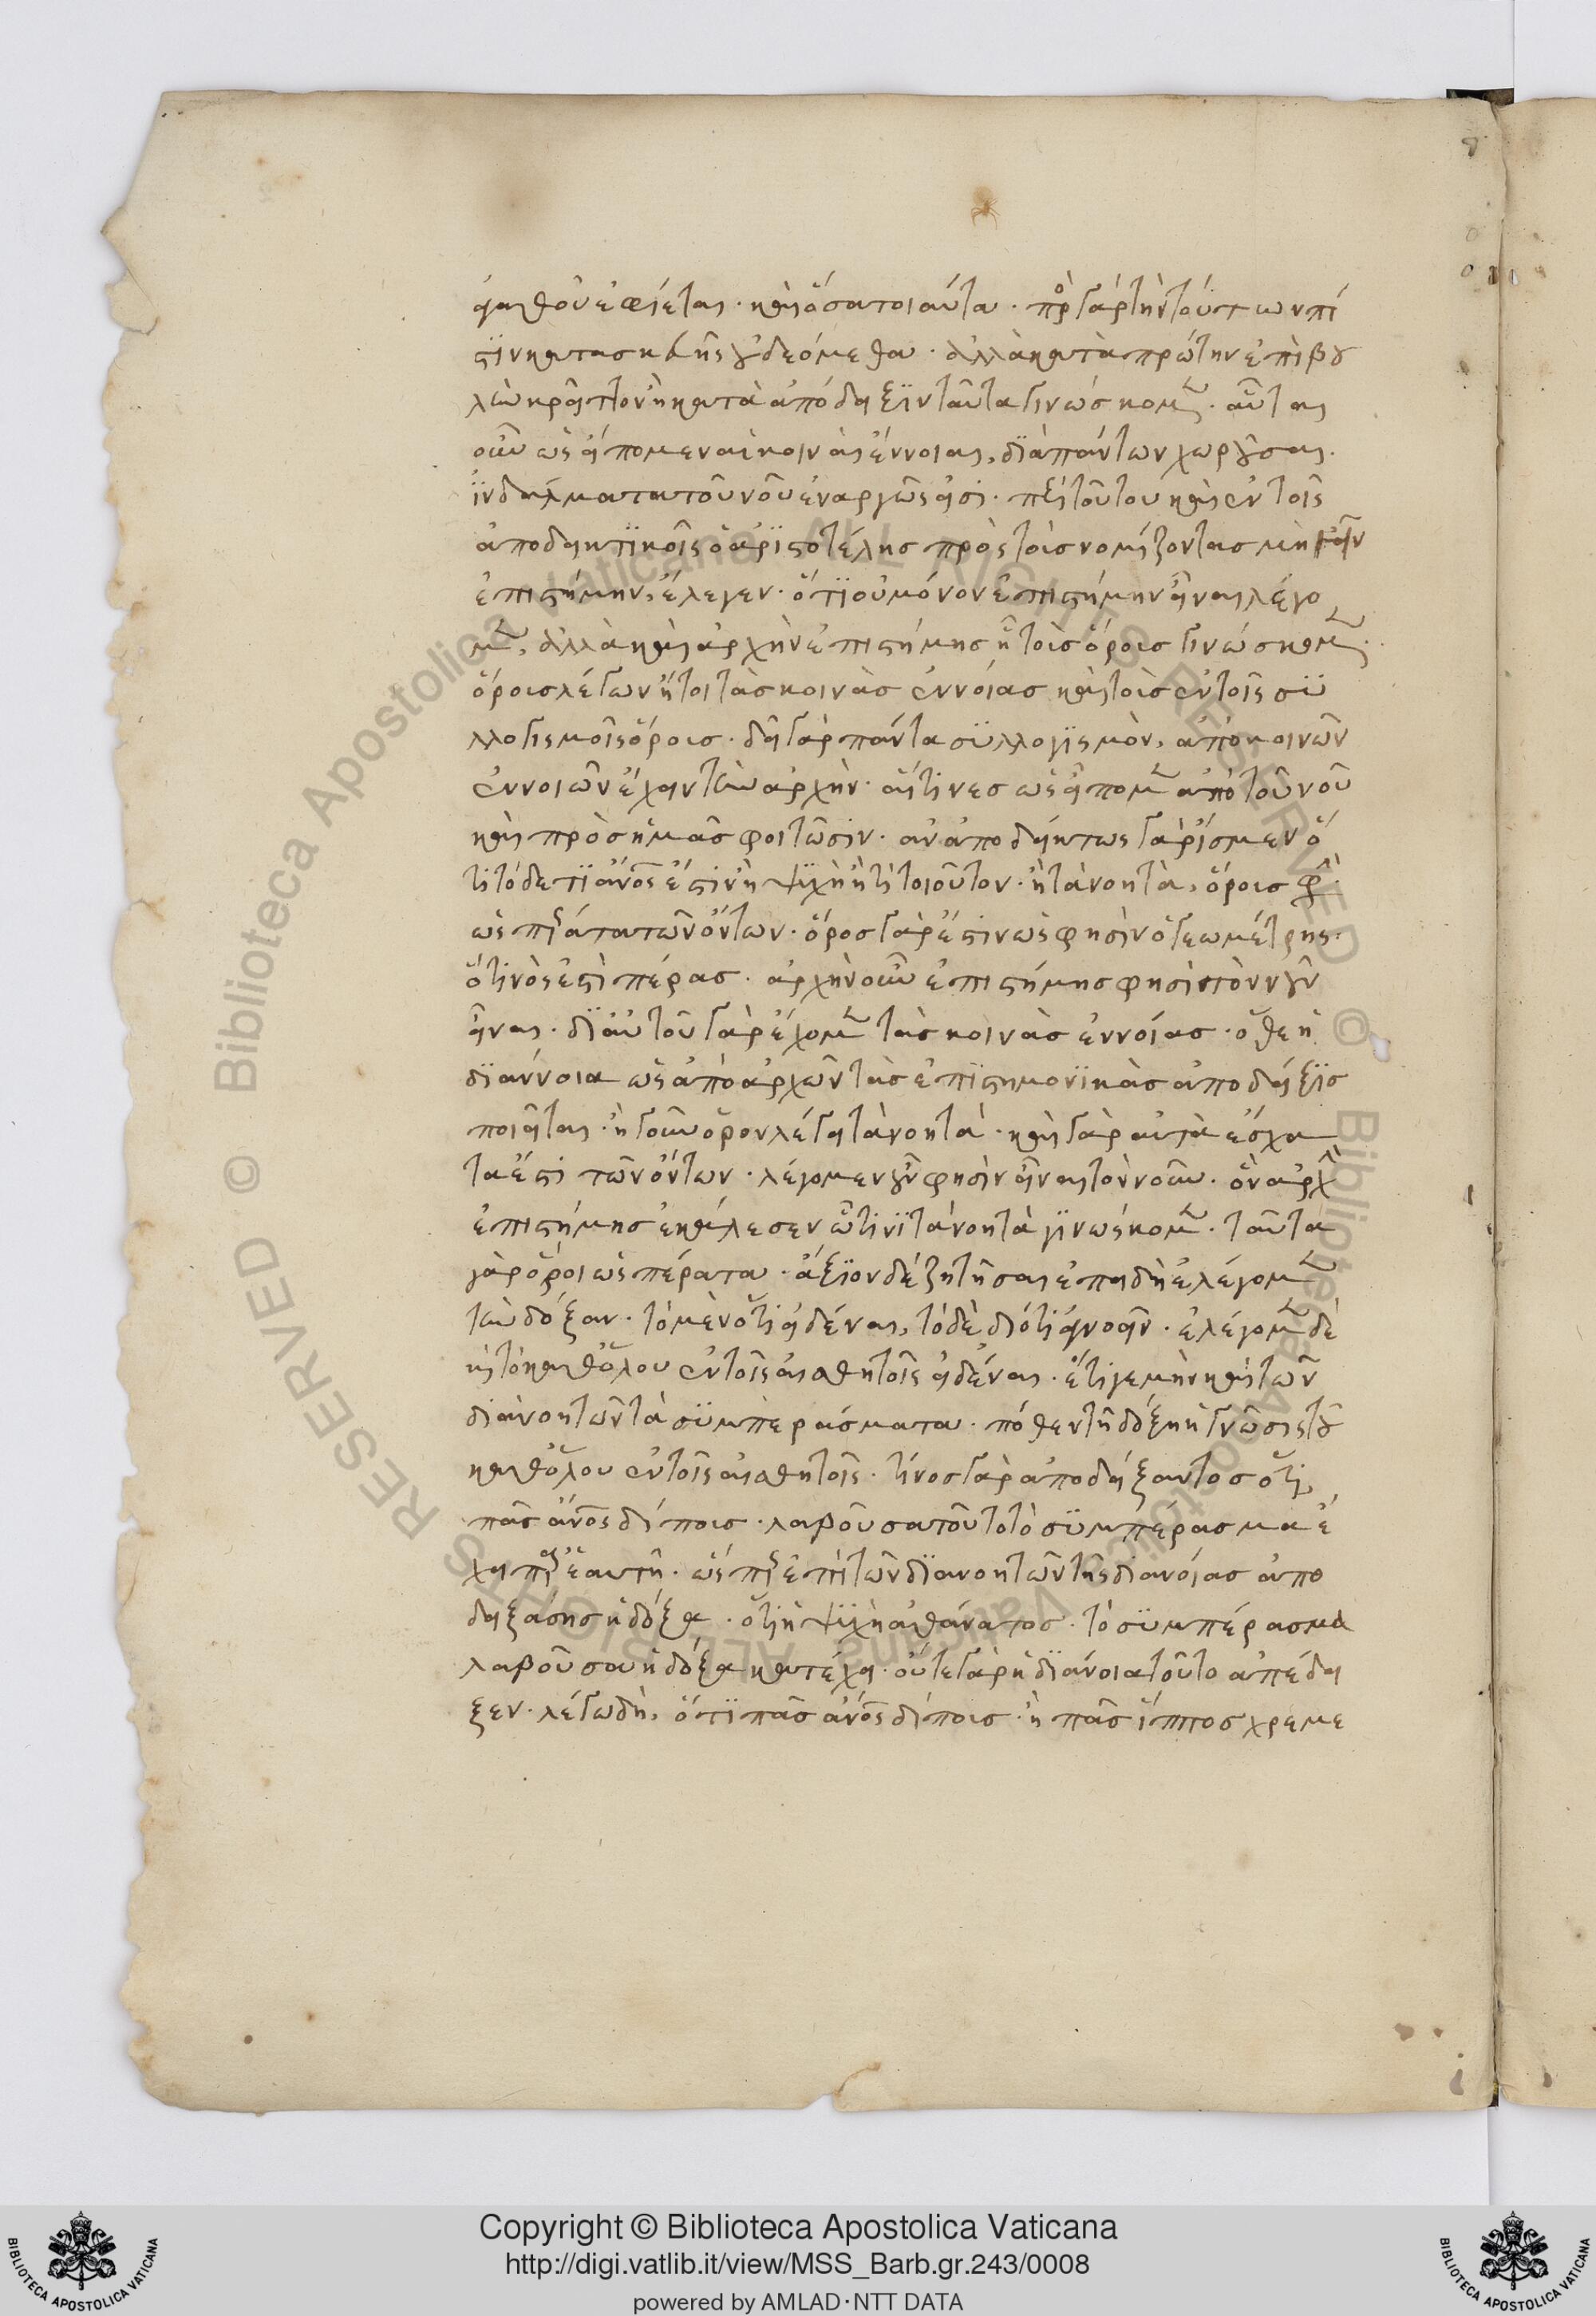 ἀγαθοῦ ἐφίεται · καὶ ὅσα τοιαῦτα · πρὸς γὰρ τὴν τούτων πί
στιν κατασκευῆς οὐ δεόμεθα · ἀλλὰ κατὰ πρώτην ἐπιβο
λὴν κρεῖττον ἢ κατὰ ἀπόδειξιν ταῦτα γινώσκομεν · αὗται
οὖν ὡς εἴπομεν αἱ κοιναὶ ἔννοιαι, διὰ πάντων χωροῦσαι ·
ἰνδάλματα τοῦ νοῦ ἐναργῶς εἰσι · περὶ τούτου καὶ ἐν τοῖς
ἀποδεικτικοῖς ὁ ἀριστοτέλης πρὸς τοὺς νομίζοντας μὴ εἶναι
ἐπιστήμην, ἔλεγεν · ὅτι οὐ μόνον ἐπιστήμην εἶναι λέγο
μεν, ἀλλὰ καὶ ἀρχὴν ἐπιστήμης ᾗ τοὺς ὅρους γινώσκομεν ·
ὅρους λέγων ἤτοι τὰς κοινὰς ἐννοίας καὶ τοὺς ἐν τοῖς συ
λλογισμοῖς ὅρους · δεῖ γὰρ πάντα συλλογισμὸν, ἀπὸ κοινῶν
ἐννοιῶν ἔχειν τὴν ἀρχὴν · αἵτινες ὡς εἴπομεν ἀπὸ τοῦ νοῦ
καὶ πρὸς ἡμᾶς φοιτῶσιν · ἀναποδείκτως γὰρ ἴσμεν ὅ
τι τόδε τι ἄνος ἐστὶν ἢ ψυχὴ ἤ τι τοιοῦτον · ἢ τὰ νοητὰ, ὅρους φησὶ
ὡς πέρατα τῶν ὄντων · ὅρος γάρ ἐστιν ὥς φησιν ὁ γεωμέτρης ·
ὅ τινός ἐστι πέρας · ἀρχὴν οὖν ἐπιστήμης φησὶ τὸν νοῦν
εἶναι · δι αὐτοῦ γὰρ ἔχομεν τὰς κοινὰς ἐννοίας · ὅθεν ἡ
διάννοια ὡς ἀπὸ ἀρχῶν τὰς ἐπιστημονικὰς ἀποδείξεις
ποιεῖται · ἢ γοῦν ὅρον λέγει τὰ νοητὰ · καὶ γὰρ αὐτὰ ἔσχα
τά ἐστι τῶν ὄντων · λέγομεν οὖν φησιν εἶναι τὸν νοῦν · ὃν ἀρχὴν
ἐπιστήμης ἐκάλεσεν ᾧτινι τὰ νοητὰ γινώσκομεν · ταῦτα
γὰρ ὅροι ὡς πέρατα · ἄξιον δὲ ζητῆσαι ἐπειδὴ ἐλέγομεν
τὴν δόξαν · τὸ μὲν ὅτι εἰδέναι, τὸ δὲ διότι ἀγνοεῖν · ἐλέγομεν δὲ
καὶ τὸ καθόλου ἐν τοῖς αἰσθητοῖς εἰδέναι · ἔτι γε μὴν καὶ τῶν
διανοητῶν τὰ συμπεράσματα · πόθεν τῇ δόξῃ ἡ γνῶσις τοῦ
καθόλου ἐν τοῖς αἰσθητοῖς · τίνος γὰρ ἀποδείξαντος ὅτι
πᾶς ἄνος δίπους · λαβοῦσα τοῦτο τὸ συμπέρασμα ἔ
χει παρ ἑαυτῇ · ὥσπερ ἐπὶ τῶν διανοητῶν τῆς διανοίας ἀπο
δειξάσης ἡ δόξα · ὅτι ἡ ψυχὴ ἀθάνατος · τὸ συμπέρασμα
λαβοῦσα ἡ δόξα κατέχει · οὔτε γὰρ ἡ διάνοια τοῦτο ἀπέδει
ξεν · λέγω δὴ, ὅτι πᾶς ἄνος δίπους · ἢ πᾶς ἵππος χρεμε
Copyright © Biblioteca Apostolica Vaticana
http://digi.vatlib.it/view/MSS_Barb.gr.243/0008
powered by AMLAD·NTT DATA